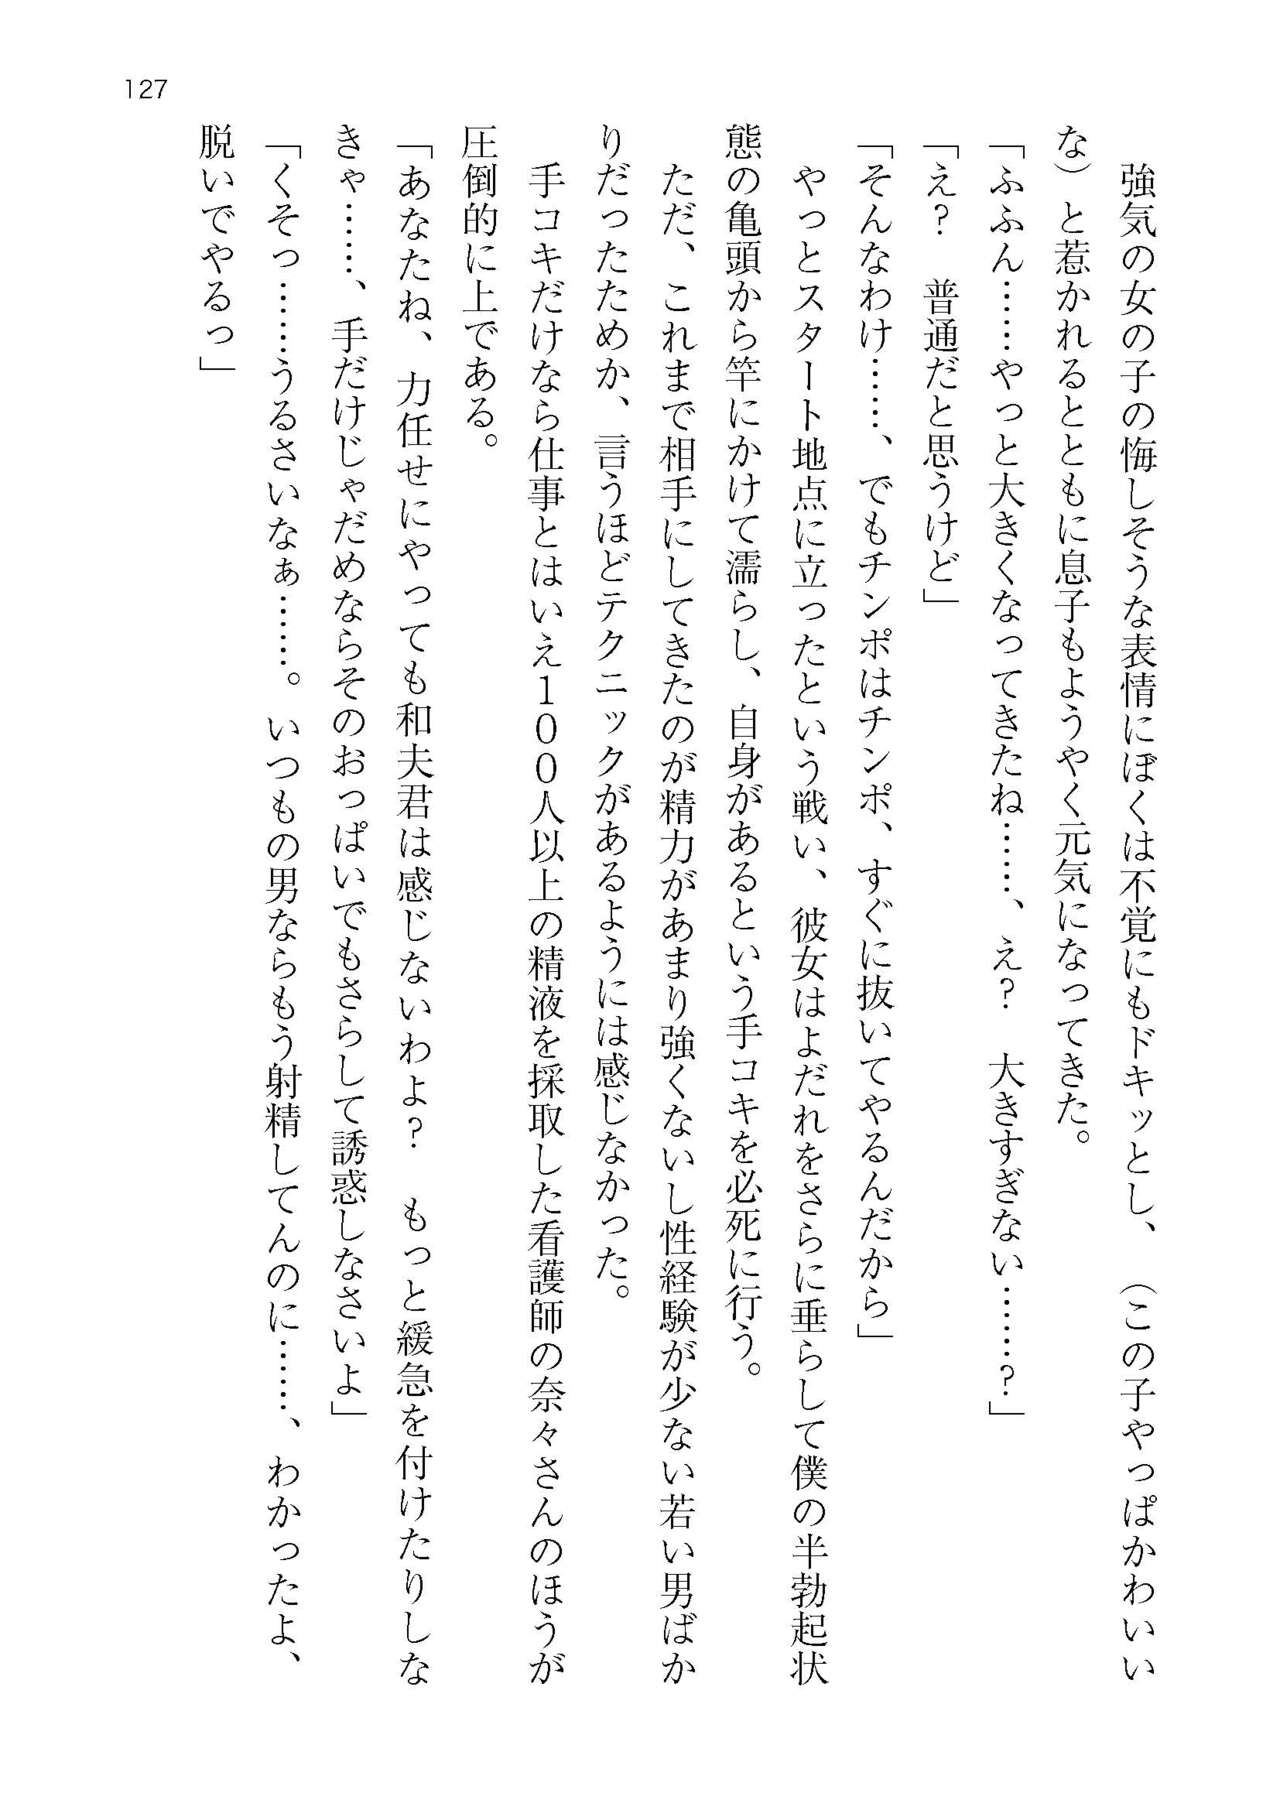 127
　強気の女の子の悔しそうな表情にぼくは不覚にもドキッとし、（この子やっぱかわいい
な）と惹かれるとともに息子もようやく元気になってきた。
「ふふん……やっと大きくなってきたね……、え？　大きすぎない……？」
「え？　普通だと思うけど」
「そんなわけ……、でもチンポはチンポ、すぐに抜いてやるんだから」
　やっとスタート地点に立ったという戦い、彼女はよだれをさらに垂らして僕の半勃起状
態の亀頭から竿にかけて濡らし、自身があるという手コキを必死に行う。
　ただ、これまで相手にしてきたのが精力があまり強くないし性経験が少ない若い男ばか
りだったためか、言うほどテクニックがあるようには感じなかった。
　手コキだけなら仕事とはいえ１００人以上の精液を採取した看護師の奈々さんのほうが
圧倒的に上である。
「あなたね、力任せにやっても和夫君は感じないわよ？　もっと緩急を付けたりしな
きゃ……、手だけじゃだめならそのおっぱいでもさらして誘惑しなさいよ」
「くそっ……うるさいなぁ……。いつもの男ならもう射精してんのに……、わかったよ、
脱いでやるっ」